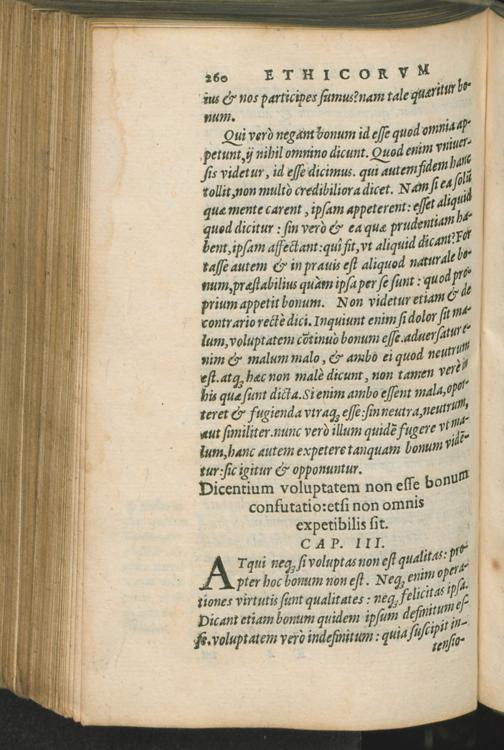 260 ETHICORVM
ius & nos participes sumus? nam tale quæritur bo-
num.
Qui verò negant bonum id esse quod omnia ap-
petunt, ij nihil omnino dicunt. Quod enim vniuer-
sis videtur, id esse dicimus. qui autem fidem hanc
tollit, non multò credibiliora dicet. Nam si ea solũ
quæ mente carent, ipsam appeterent: esset aliquid
quod dicitur: sin verò & ea quæ prudentiam ha-
bent, ipsam affectant: quî fit, vt aliquid dicant? For
tasse autem & in prauis est aliquod naturale bo-
num, præstabilius quàm ipsa per se sunt: quod pro-
prium appetit bonum. Non videtur etiam & de
contrario rectè dici. Inquiunt enim si dolor sit ma-
lum, voluptatem cõtinuò bonum esse. aduersatur e-
nim & malum malo, & ambo ei quod neutrum
est. atq; hæc non malè dicunt, non tamen verè in
his quæ sunt dicta. Si enim ambo essent mala, opor-
teret & fugienda vtraq; esse: sin neutra, neutrum,
aut similiter. nunc verò illum quidẽ fugere vt ma-
lum, hanc autem expetere tanquam bonum vidẽ-
tur: sic igitur & opponuntur.
Dicentium voluptatem non esse bonum
confutatio: etsi non omnis
expetibilis sit.
CAP. III.
ATqui neq; si voluptas non est qualitas: pro-
pter hoc bonum non est. Neq; enim opera-
tiones virtutis sunt qualitates: neq; felicitas ipsa.
Dicant etiam bonum quidem ipsum definitum es-
se. voluptatem verò indefinitum: quia suscipit in-
tensio-